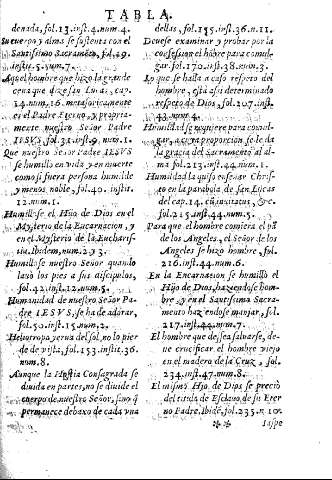 TABLA.
denada, fol.13. inst.4. num.4.
Su cuerpo y alma se sustenta con el
Santissimo Sacramẽto, fol.29.
inst.5. num.7.
Aquel hombre que hizo la grande
cena que dize san Lucas, cap.
14. num.16. metaforicamente
es el Padre Eterno, y propria-
mente nuestro Señor Padre
IESVS, fol.31. inst.9. num.1.
Que nuestro Señor Padre IESVS
se humilló en vida y en muerte
como si fuera persona humilde
y menos noble, fol.40. inst.
12. num.1.
Humillose el Hijo de Dios en el
Mysterio de la Encarnacion, y
en el Mysterio de la Eucharis-
tia, Ibidem, num. 2. y 3.
Humillóse nuestro Señor quando
lavò los pies a sus discipulos,
fol.42. inst.12. num.5.
Humanidad de nuestro Señor Pa-
dre IESVS, se ha de adorar,
fol.50. inst.15. num.2.
Heliotropia, yerva del sol, no le pier-
de de vista, fol.153. inst.36.
num.8.
Aunque la Hostia Consagrada se
divida en partes, no se divide el
cuerpo de nuestro Señor, sino q̃
permanece debaxo de cada una
dellas, fol.155. inst.36. n.11.
Devese examinar y probar por la
confession el hõbre para comul-
gar. fol.170. inst.38. num.3.
Lo que se halla a caso respeto del
hombre, està assi determinado
respeto de Dios, fol.207. inst.
43. num.4.
Humildad se requiere para comul-
gar, a cuya proporcion se le da
la gracia del Sacramento al al-
ma fol.213. inst.44. num.1.
Humildad la quiso enseñar Chris-
to en la parabola de San Lucas
del cap.14. cũ invitatus, &c.
fol.215. inst.44. num.5.
Para que el hombre comiera el pã
de los Angeles, el Señor de los
Angeles se hizo hombre, fol.
216. inst.44. num.6.
En la Encarnacion se humilló el
Hijo de Dios, haziendose hom-
bre, y en el Santissimo Sacra-
mento haziendose manjar, fol.
217. inst.44. num.7.
El hombre que dessea salvarse, de-
ve crucificar el hombre viejo
en el madero de la Cruz, fol.
234. inst.47. num.8.
El mismo Hijo de Dios se preciò
del titulo de Esclavo de su Eter
no Padre, Ibidẽ, fol.235. n. 10.
Iaspe